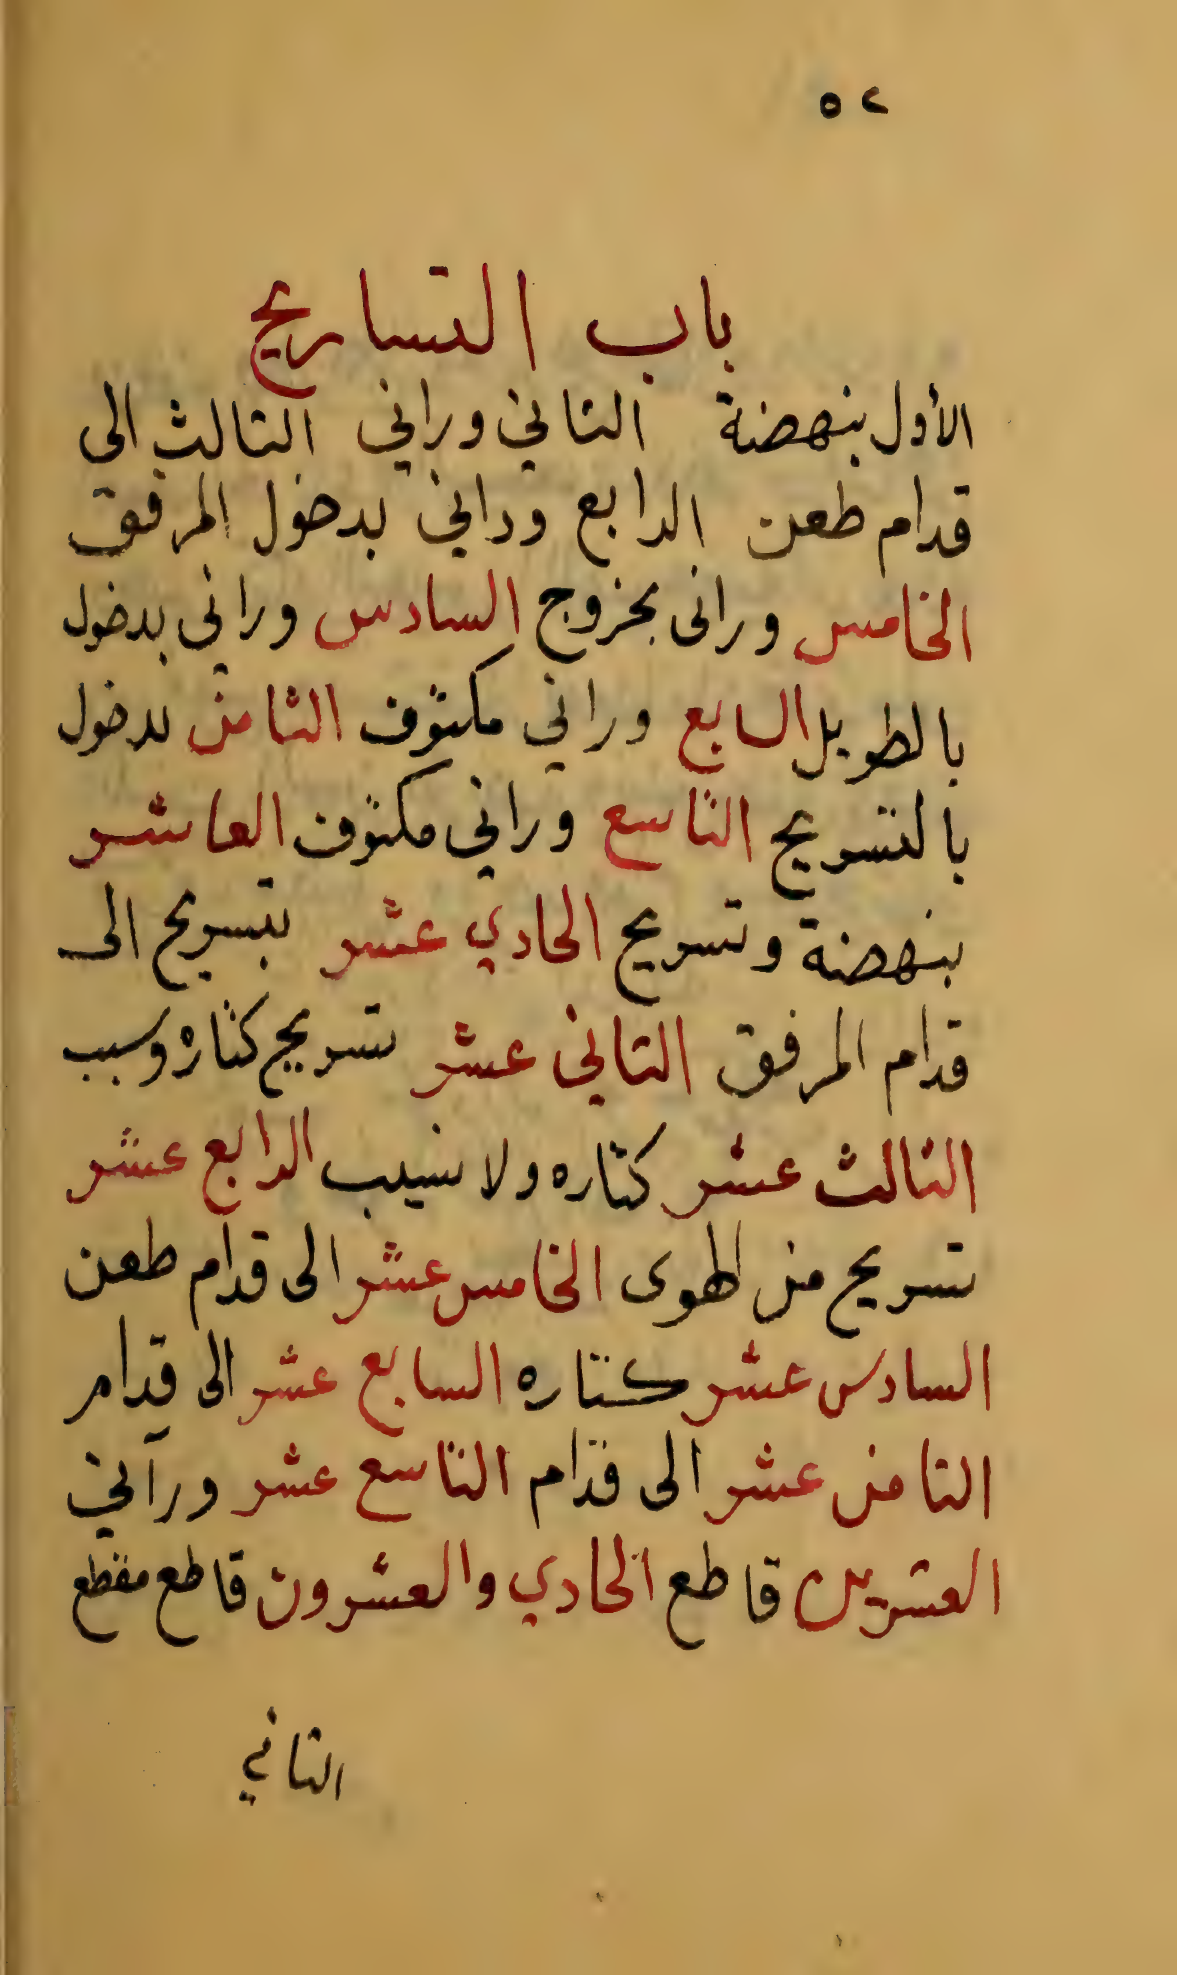 ٥٢
باب التساريح
الأول بنهضة الثاني وراني الثالث الى
قدام طعن الرابع وراني بدخول المرفق
الخامس وراني بخروج السادس وراني بدخول
بالطويل السابع وراني مكتوف الثامن بدخول
بالتسريح التاسع وراني مكتوف العاشر
بنهضة وتسريح الحادي عشر بتسريح الى
قدام المرفق الثاني عشر تسريح كتاره وسيب
الثالث عشر كتاره ولا نسيب الرابع عشر
تسريح من الهوى الخامس عشر الى قدام طعن
السادس عشر كتاره السابع عشر الى قدام
الثامن عشر الى قدام التاسع عشر ورآني
العشرين قاطع الحادي والعشرون قاطع مقطع
الثاني